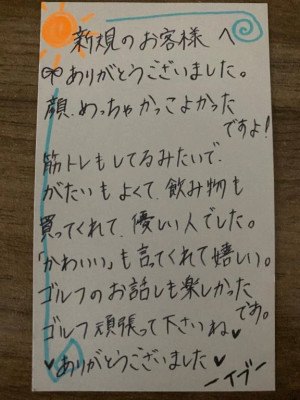 新規のお客様へ
ありがとうございました。
顔、めっちゃかっこよかった
ですよ!
筋トレもしてるみたいで、
がたいもよくて、飲み物も
買ってくれて、優しい人でした。
「かわいい」も言ってくれて嬉しい。
ゴルフのお話しも楽しかった
です。
ゴルフ頑張って下さいね♥
♥ありがとうございました♥
ーイブー